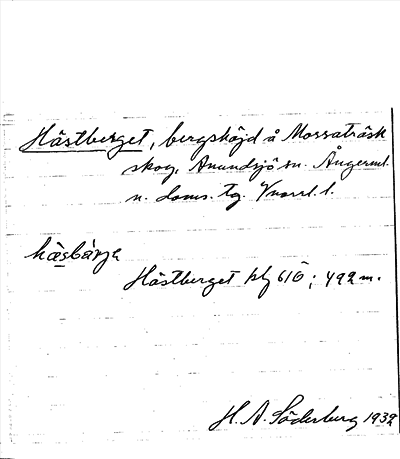 Hästberget, bergshöjd å Mossaträsk
skog, Anundsjö sn. Ångerml.
n. doms. tg. Västernl. l.
häsbärje
Hästberget kbl 61Ö; 492 m.
H. A. Söderberg 1932